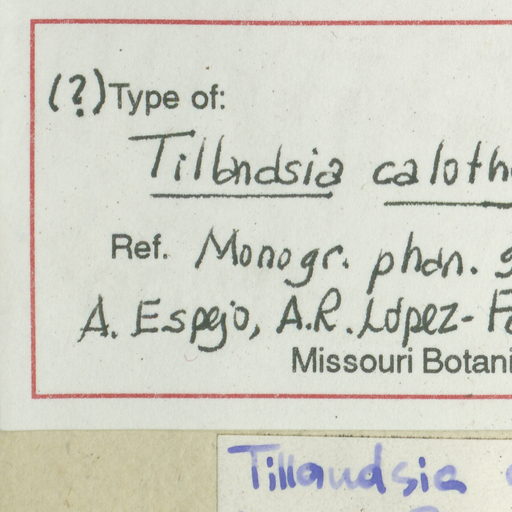 (?) Type of:
Tillandsia caloth
Ref. Monogr. phan.
A. Espejo, A.R. López-F
Missouri Botani
Tillandsia